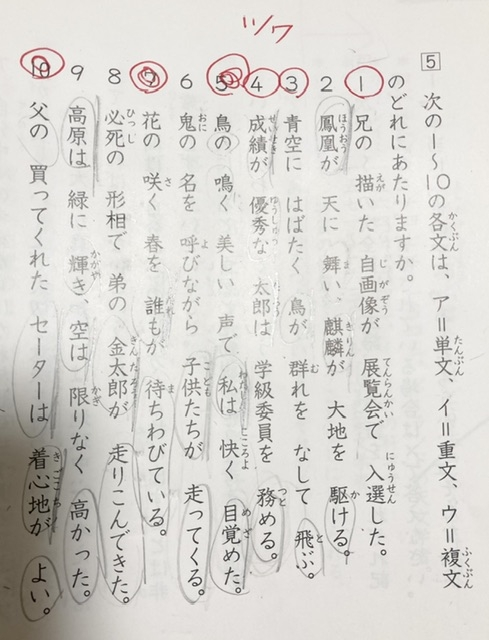 ツ/ワ
5 次の1~10の各文は、ア=単文、イ=重文、ウ=複文
のどれにあたりますか。
1 兄の 描いた 自画像が 展覧会で 入選した。
2 鳳凰が 天に 舞い、麒麟が 大地を 駆ける。
3 青空に はばたく 鳥が 群れを なして 飛ぶ。
4 成績が 優秀な 太郎は 学級委員を 務める。
5 鳥の 鳴く 美しい 声で 私は 快く 目覚めた。
6 鬼の 名を 呼びながら 子供たちが 走ってくる。
7 花の 咲く 春を 誰もが 待ちわびている。
8 必死の 形相で 弟の 金太郎が 走りこんできた。
9 高原は 緑に 輝き、空は 限りなく 高かった。
10 父の 買ってくれた セーターは 着心地が よい。